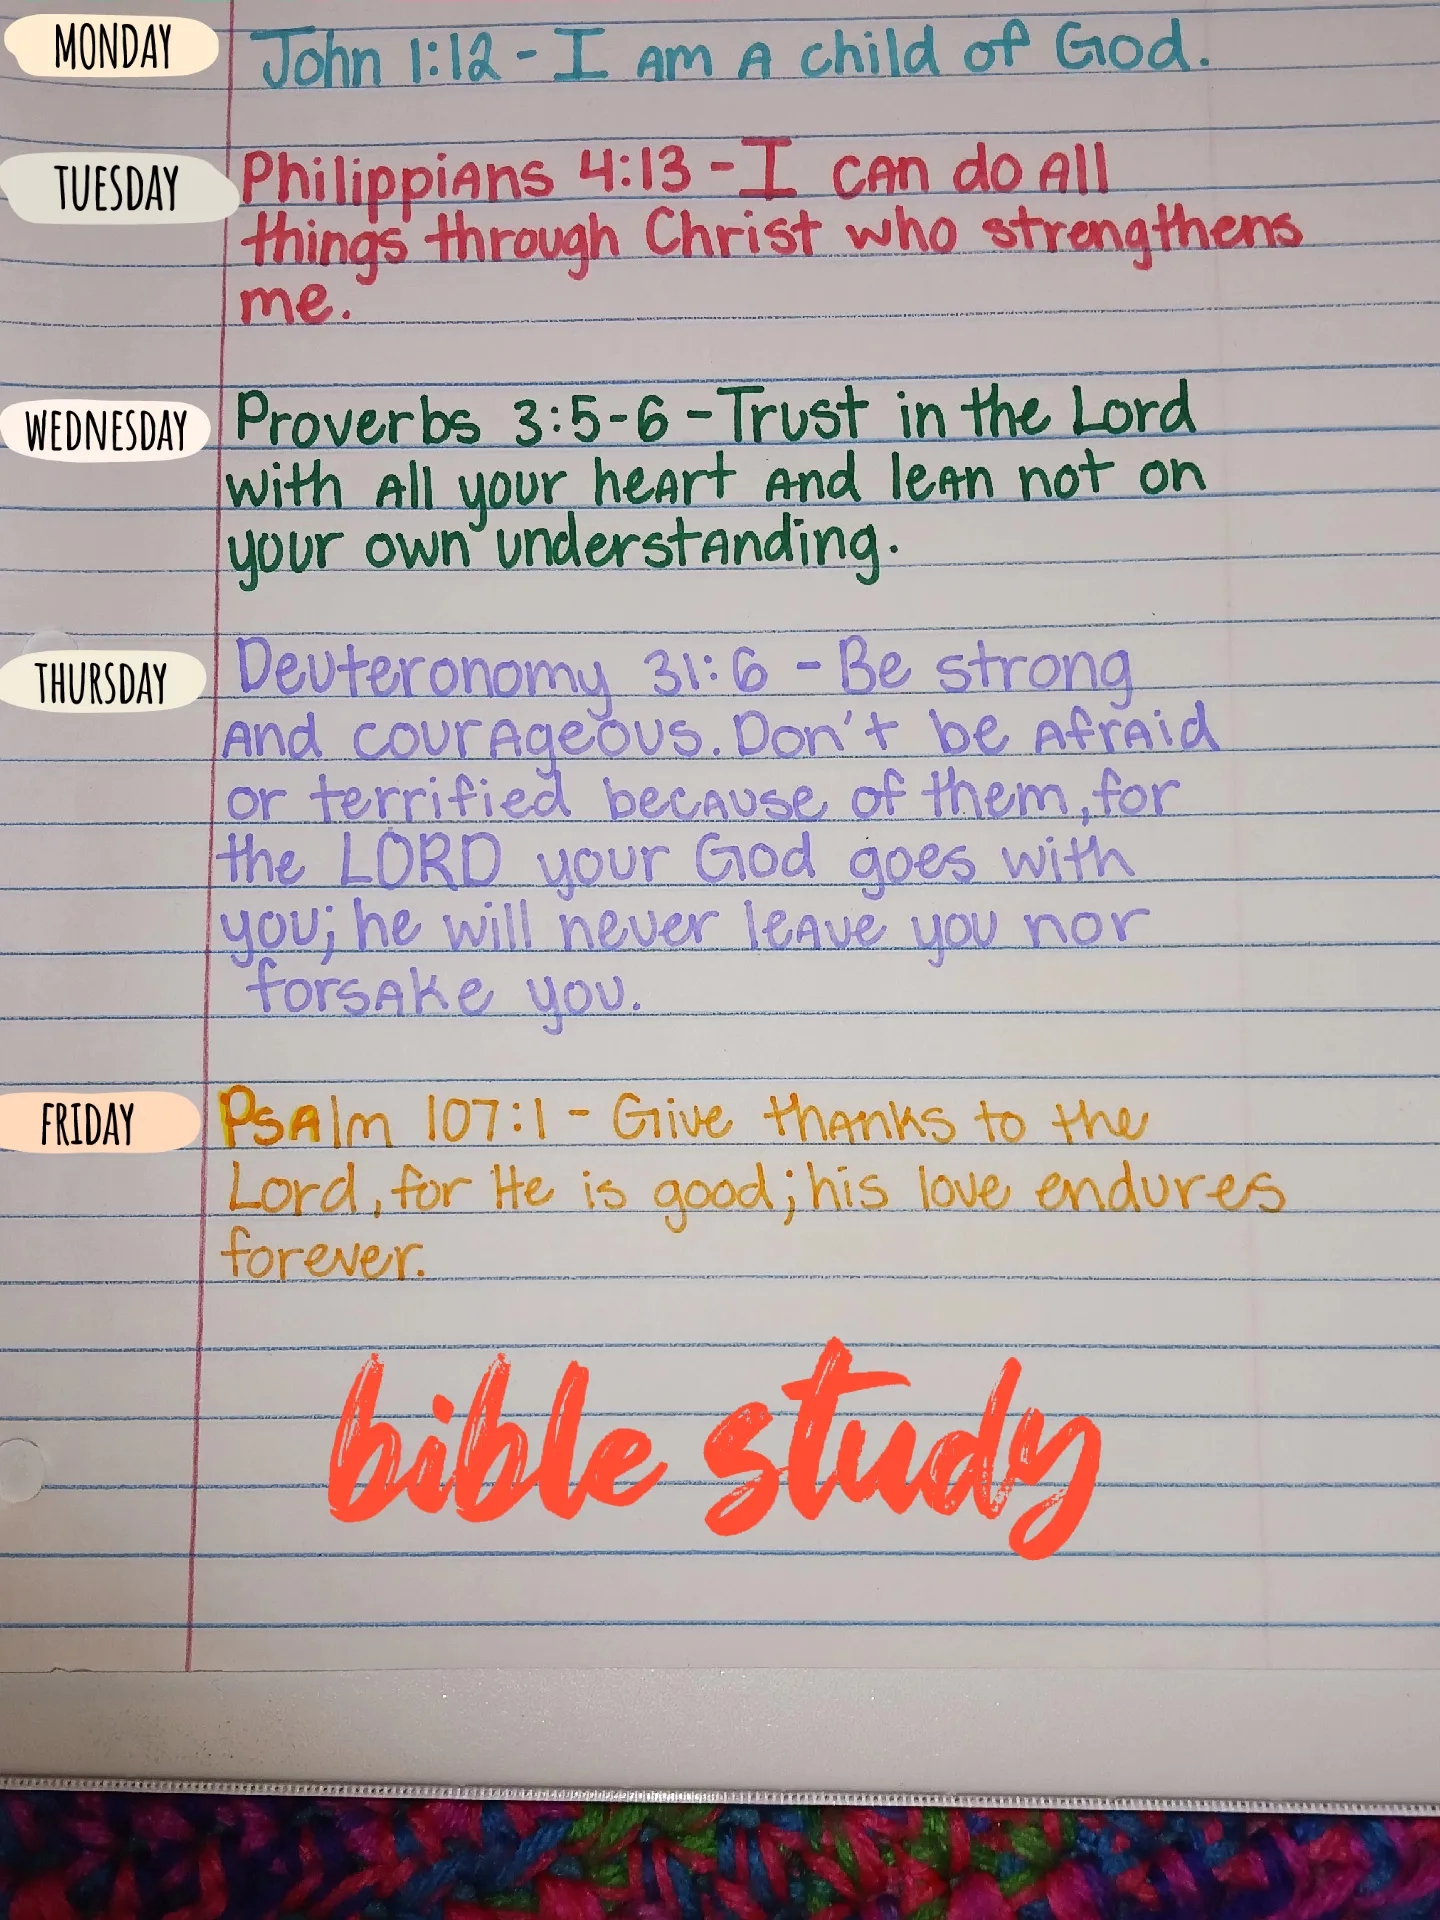 MONDAY
John 1:12 - I am a child of God.
TUESDAY
Philippians 4:13 - I can do all
things through Christ who strengthens
me.
WEDNESDAY
Proverbs 3:5-6 - Trust in the Lord
with all your heart and lean not on
your own understanding.
THURSDAY
Deuteronomy 31:6 - Be strong
and courageous. Don't be afraid
or terrified because of them, for
the LORD your God goes with
you; he will never leave you nor
forsake you.
FRIDAY
Psalm 107:1 - Give thanks to the
Lord, for He is good; his love endures
forever.
bible study